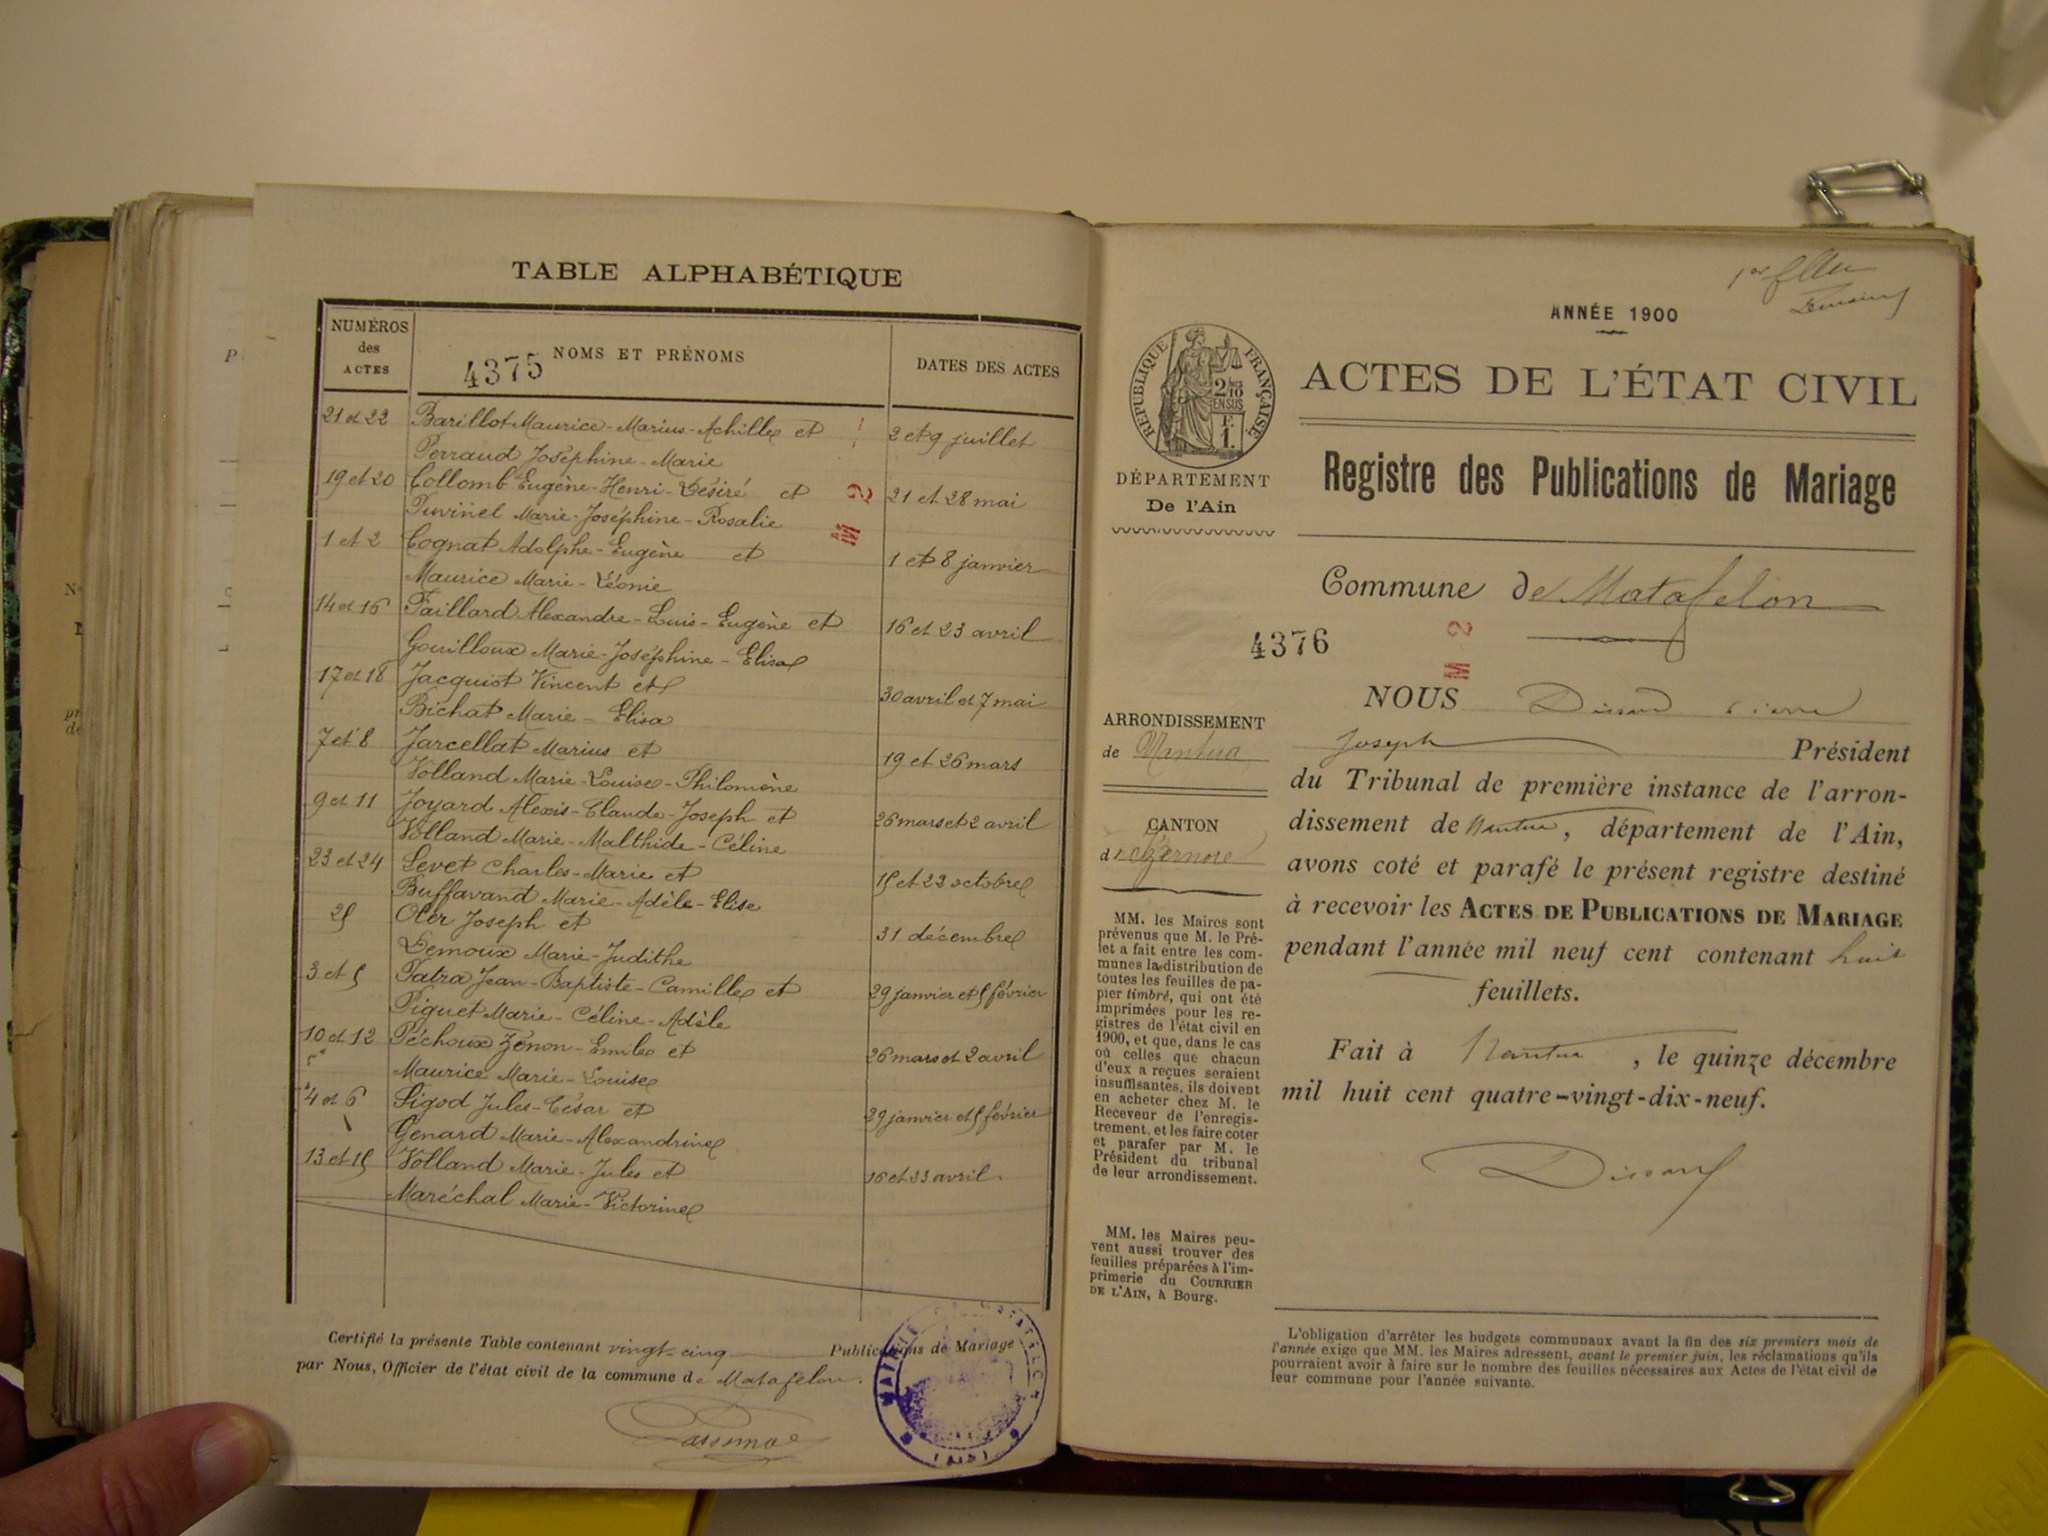 TABLE ALPHABÉTIQUE
NUMÉROS des ACTES
4375 NOMS ET PRÉNOMS
DATES DES ACTES
21 et 22 Barillot Maurice-Marius-Achille et 2 et 9 juillet
Perraud Joséphine-Marie
19 et 20 Collomb Eugène-Henri-Désiré et M 2 21 et 28 mai
Tuvinel Marie-Joséphine-Rosalie
1 et 2 Cognat Adolphe-Eugène et 1 et 8 janvier
Maurice Marie-Léonie
14 et 16 Faillard Alexandre-Louis-Eugène et 16 et 23 avril
Gouilloux Marie-Joséphine-Elisa
17 et 18 Jacquiot Vincent et 30 avril et 7 mai
Bichat Marie-Elisa
7 et 8 Jarcellat Marius et 19 et 26 mars
Volland Marie-Louise-Philomène
9 et 11 Joyard Alexis-Claude-Joseph et 26 mars et 2 avril
Volland Marie-Malthide-Céline
23 et 24 Levet Charles-Marie et 15 et 22 octobre
Buffavand Marie-Adèle-Elise
25 Oler Joseph et 31 décembre
Demoux Marie-Judithe
3 et 5 Patra Jean-Baptiste-Camille et 29 janvier et 5 février
Piguet Marie-Céline-Adèle
10 et 12 Péchoux Zénon-Emile et 26 mars et 2 avril
Maurice Marie-Louise
4 et 6 Sigod Jules-César et 29 janvier et 5 février
Genard Marie-Alexandrine
13 et 15 Volland Marie-Jules et 16 et 23 avril
Maréchal Marie-Victorine
Certifié la présente Table contenant vingt-cinq Publications de Mariage
par Nous, Officier de l'état civil de la commune de Matafelon.
MAIRIE
(AIN)
1er
ANNÉE 1900
RÉPUBLIQUE FRANÇAISE
2/10 EN SUS
F. 1.
ACTES DE L'ÉTAT CIVIL
DÉPARTEMENT
De l'Ain
Registre des Publications de Mariage
Commune de Matafelon
4376
M 2
ARRONDISSEMENT
de Nantua
CANTON
d'Izernore
MM. les Maires sont
prévenus que M. le Pré-
fet a fait entre les com-
munes la distribution de
toutes les feuilles de pa-
pier timbré, qui ont été
imprimées pour les re-
gistres de l'état civil en
1900, et que, dans le cas
où celles que chacun
d'eux a reçues seraient
insuffisantes, ils doivent
en acheter chez M. le
Receveur de l'enregis-
trement, et les faire coter
et parafer par M. le
Président du tribunal
de leur arrondissement.
MM. les Maires peu-
vent aussi trouver des
feuilles préparées à l'im-
primerie du COURRIER
DE L'AIN, à Bourg.
NOUS Dissard Pierre
Joseph Président
du Tribunal de première instance de l'arron-
dissement de Nantua, département de l'Ain,
avons coté et parafé le présent registre destiné
à recevoir les ACTES DE PUBLICATIONS DE MARIAGE
pendant l'année mil neuf cent contenant huit
feuillets.
Fait à Nantua, le quinze décembre
mil huit cent quatre-vingt-dix-neuf.
Dissard
L'obligation d'arrêter les budgets communaux avant la fin des six premiers mois de
l'année exige que MM. les Maires adressent, avant le premier juin, les réclamations qu'ils
pourraient avoir à faire sur le nombre des feuilles nécessaires aux Actes de l'état civil de
leur commune pour l'année suivante.